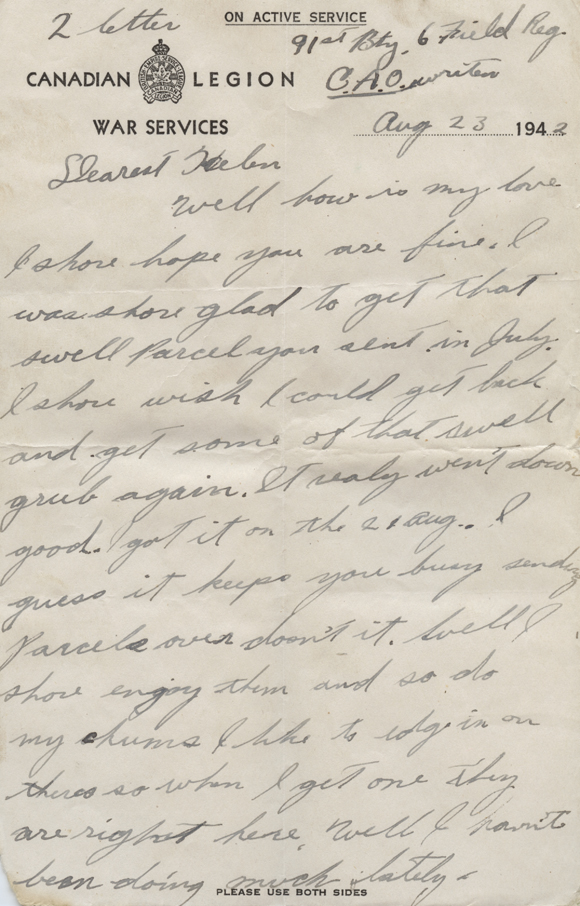 2 letter
ON ACTIVE SERVICE
91st Bty. 6 Field Reg.
CANADIAN LEGION
C.A.O. writen
WAR SERVICES
Aug 23 1942
Dearest Helen
Well how is my love
I shore hope you are fine. I
was shore glad to get that
swell Parcel you sent in July.
I shore wish I could get back
and get some of that swell
grub again. It realy wen't down
good. I got it on the 21 Aug. I
guess it keeps you busy sending
Parcels over don't it. Well I
shore enjoy them and so do
my chums I like to edge in on
theres so when I get one they
are right here. Well I havn't
been doing much lately.
PLEASE USE BOTH SIDES